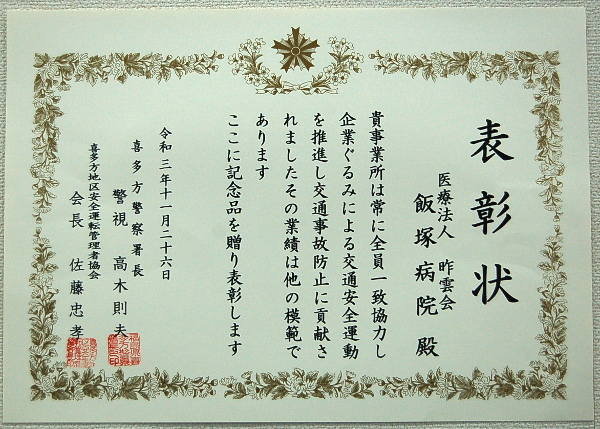 表彰状
医療法人 昨雲会
飯塚病院 殿
貴事業所は常に全員一致協力し
企業ぐるみによる交通安全運動
を推進し交通事故防止に貢献さ
れましたその業績は他の模範で
あります
ここに記念品を贈り表彰します
令和三年十一月二十六日
喜多方警察署長
警視 高木則夫
喜多方地区安全運転管理者協会
会長 佐藤忠孝